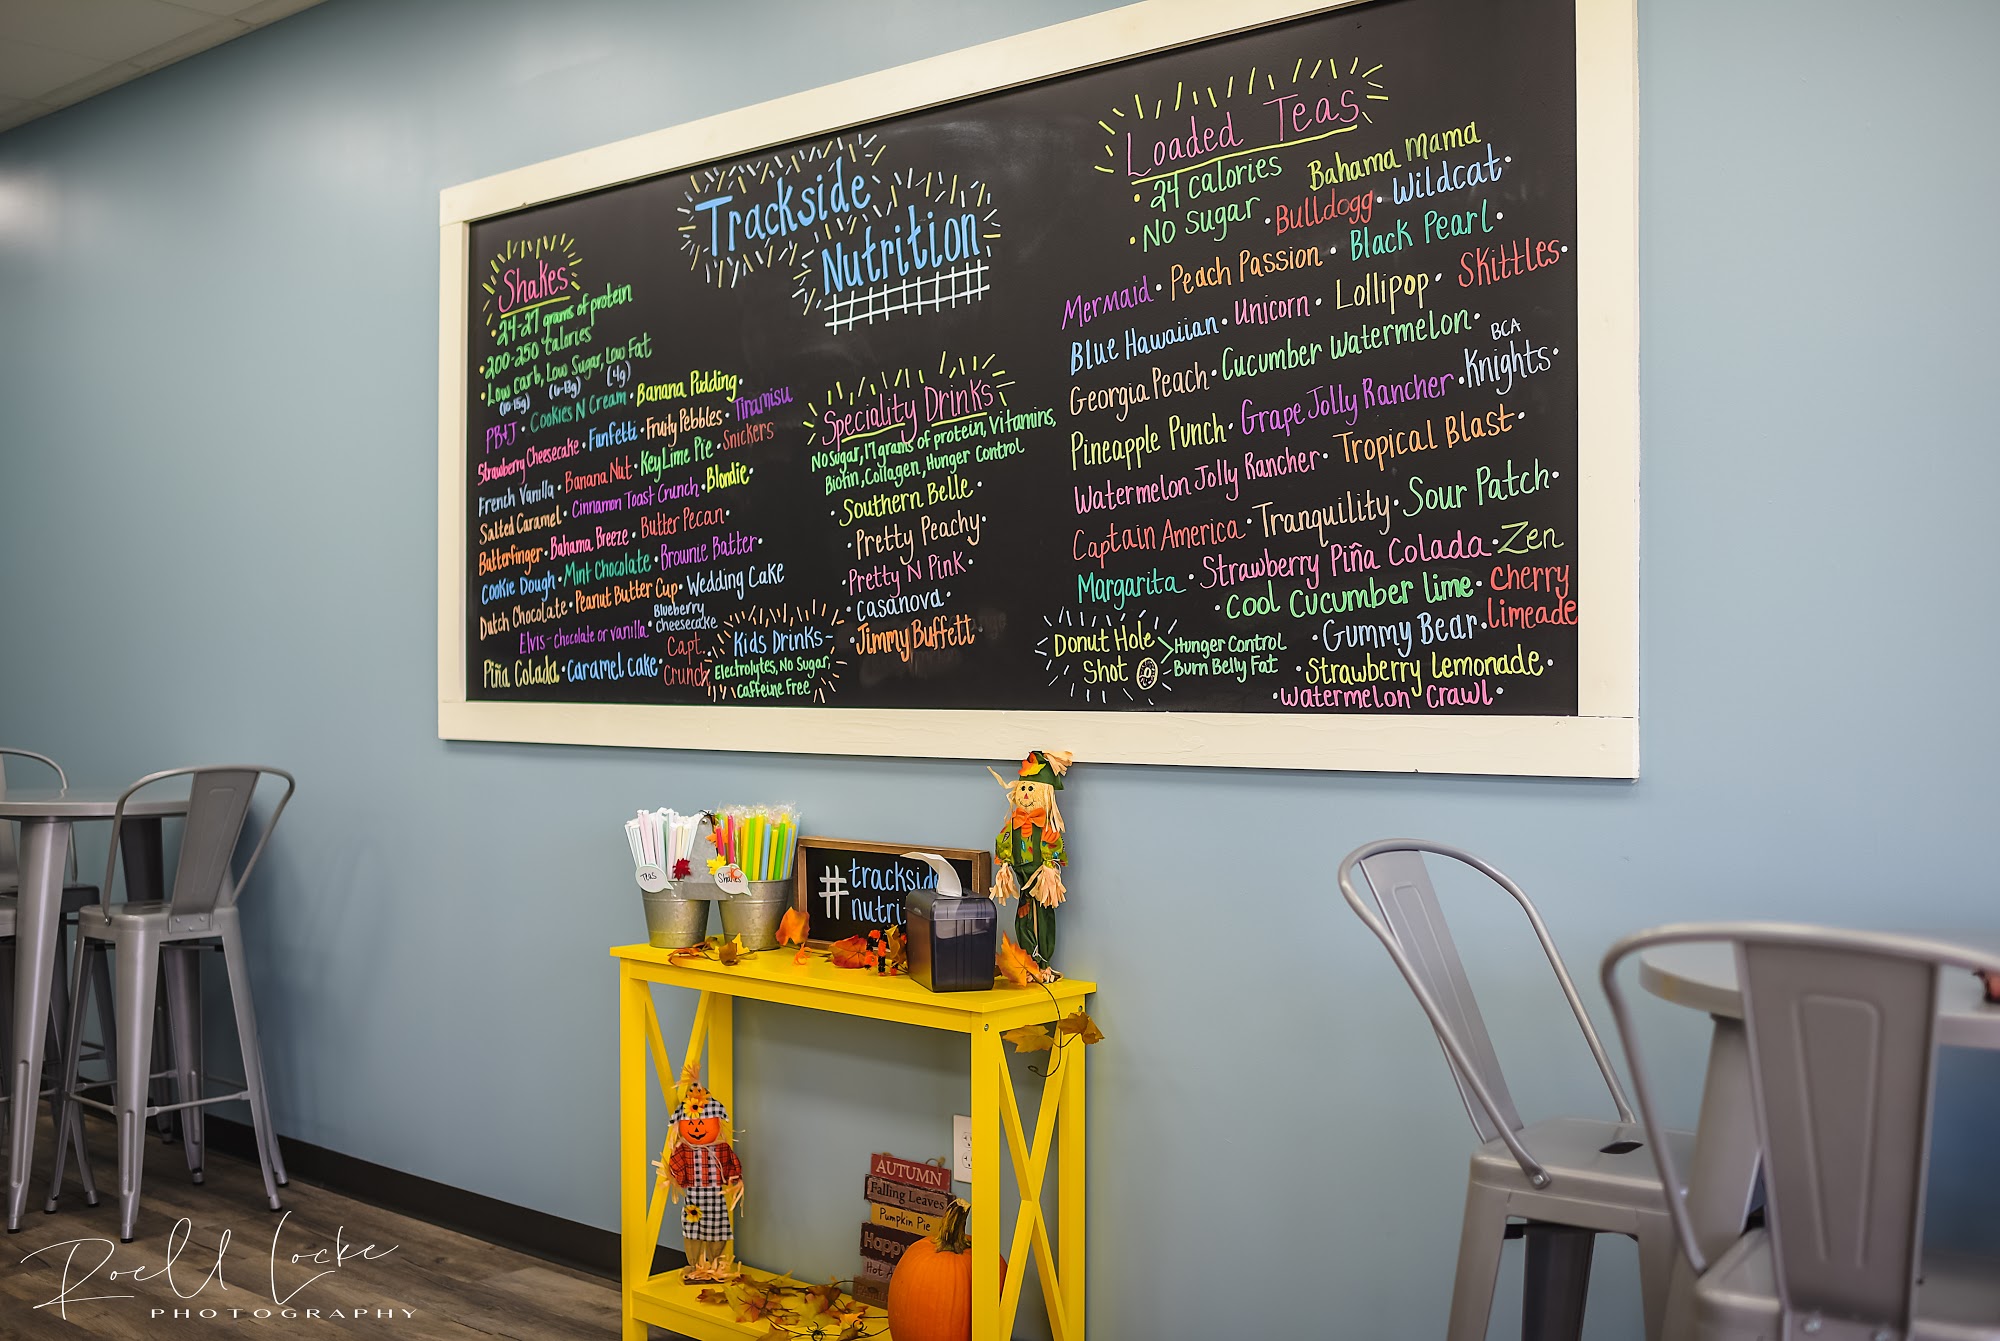 Trackside
Nutrition
Shakes
• 24-27 grams of protein
• 200-250 calories
• Low carb, Low Sugar, Low Fat
(10-15g) (6-13g) (4g)
PB+J • Cookies N Cream • Banana Pudding •
Strawberry Cheesecake • Funfetti • Fruity Pebbles • Tiramisu
French Vanilla • Banana Nut • Key Lime Pie • Snickers
Salted Caramel • Cinnamon Toast Crunch • Blondie •
Batterfinger • Bahama Breeze • Butter Pecan •
Cookie Dough • Mint Chocolate • Brownie Batter •
Dutch Chocolate • Peanut Butter Cup • Wedding Cake
Elvis - chocolate or vanilla • Blueberry Cheesecake
Piña Colada • Caramel Cake • Capt. Crunch
Kids Drinks -
Electrolytes, No Sugar,
Caffeine Free
Speciality Drinks
No Sugar, 17 grams of protein, Vitamins,
Biotin, Collagen, Hunger Control
• Southern Belle •
• Pretty Peachy •
• Pretty N Pink •
• Casanova •
• Jimmy Buffett
Loaded Teas
• 24 calories
• No Sugar
Bahama Mama
• Bulldogg • Wildcat •
Mermaid • Peach Passion • Black Pearl •
Blue Hawaiian • Unicorn • Lollipop • Skittles •
Georgia Peach • Cucumber Watermelon •
Pineapple Punch • Grape Jolly Rancher • BCA Knights •
Watermelon Jolly Rancher • Tropical Blast •
Captain America • Tranquility • Sour Patch •
Margarita • Strawberry Piña Colada • Zen
• Cool Cucumber Lime • Cherry Limeade
• Gummy Bear •
• Strawberry Lemonade •
• Watermelon Crawl •
Donut Hole
Shot
Hunger Control
Burn Belly Fat
Teas
Shakes
#tracksid
nutri
AUTUMN
Falling Leaves
Pumpkin Pie
Happy
Hot A
Roeld Locke
PHOTOGRAPHY